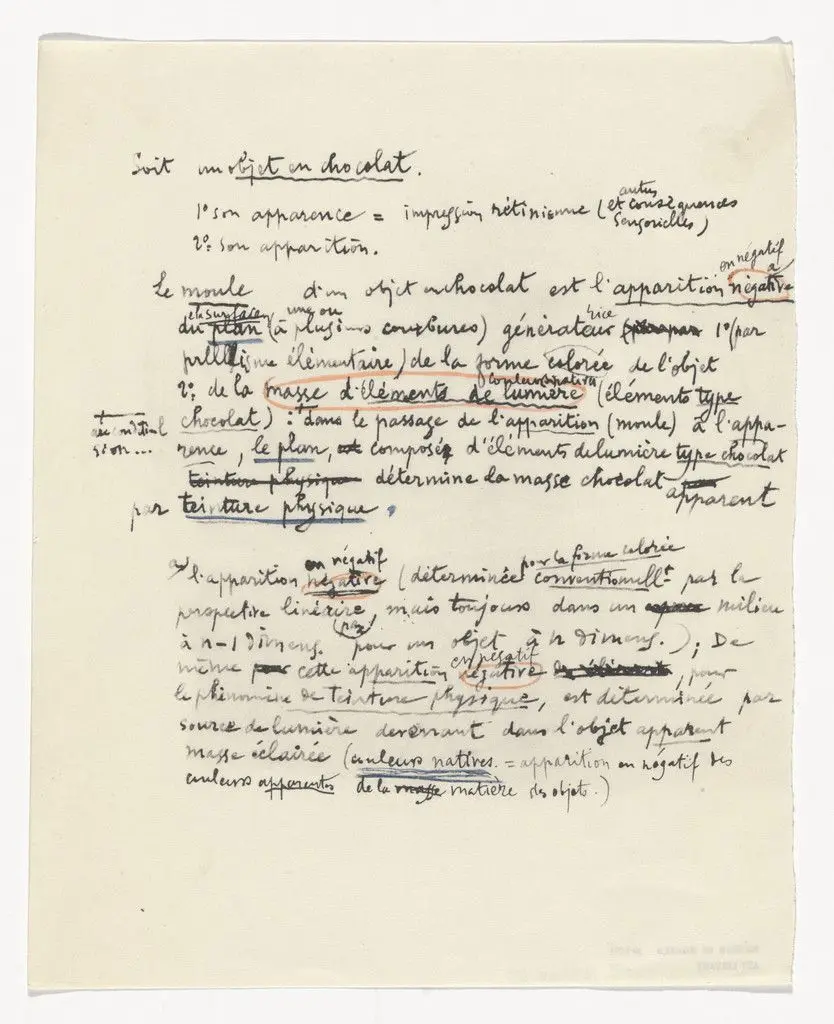 Soit un objet en chocolat.
1º son apparence = impression rétinienne (et autres conséquences
sensorielles)
2º son apparition.
en négatif
Le moule d'un objet en chocolat est l'apparition négative a
et surface une ou
du plan (à plusieurs courbures) générateur rice 1º (par
élémentaire) de la forme colorée de l'objet
2º de la masse d'éléments de lumière (éléments type
chocolat) : dans le passage de l'apparition (moule) à l'appa-
sion...
rence, le plan, composé d'éléments de lumière type chocolat
teinture physique détermine la masse chocolat apparent
par teinture physique.
en négatif pour la forme colorée
a) l'apparition négative (déterminée conventionellt par la
perspective linéaire, mais toujours dans un milieu
à n-1 dimens. (par) pour un objet à n dimens.); De
en négatif
même pour cette apparition négative, pour
le phénomène de teinture physique, est déterminée par
source de lumière devenant dans l'objet apparent
masse éclairée (couleurs natives = apparition en négatif des
couleurs apparentes de la masse matière des objets.)